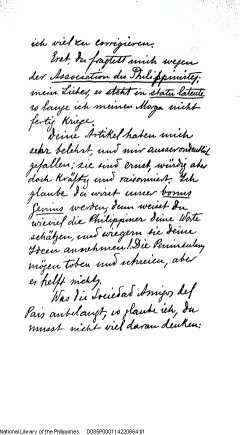 ich viel zu corrigieren.
Erst du fragtest mich wegen
der Association des Philippinistes;
mein Lieber, es steht in statu latente
so lange ich meinen Morga nicht
fertig kriege.
Deine Artikel haben mich
sehr belehrt, und mir ausserordentlich
gefallen; sie sind ernst, würdig aber
doch kräftig und raisonniert. Ich
glaube du wirst unser bonus
Genius werden, denn weisst du
wieviel die Philippiner deine Worte
schätzen, und wie gern sie deine
Ideen annehmen! Die Peninsulaner
mögen toben und schreien, aber
es hilft nichts.
Was die Sociedad Amigos del
Pais anbelangt, so glaube ich, du
musst nicht viel daran denken:
National Library of the Philippines D086P00011422086401